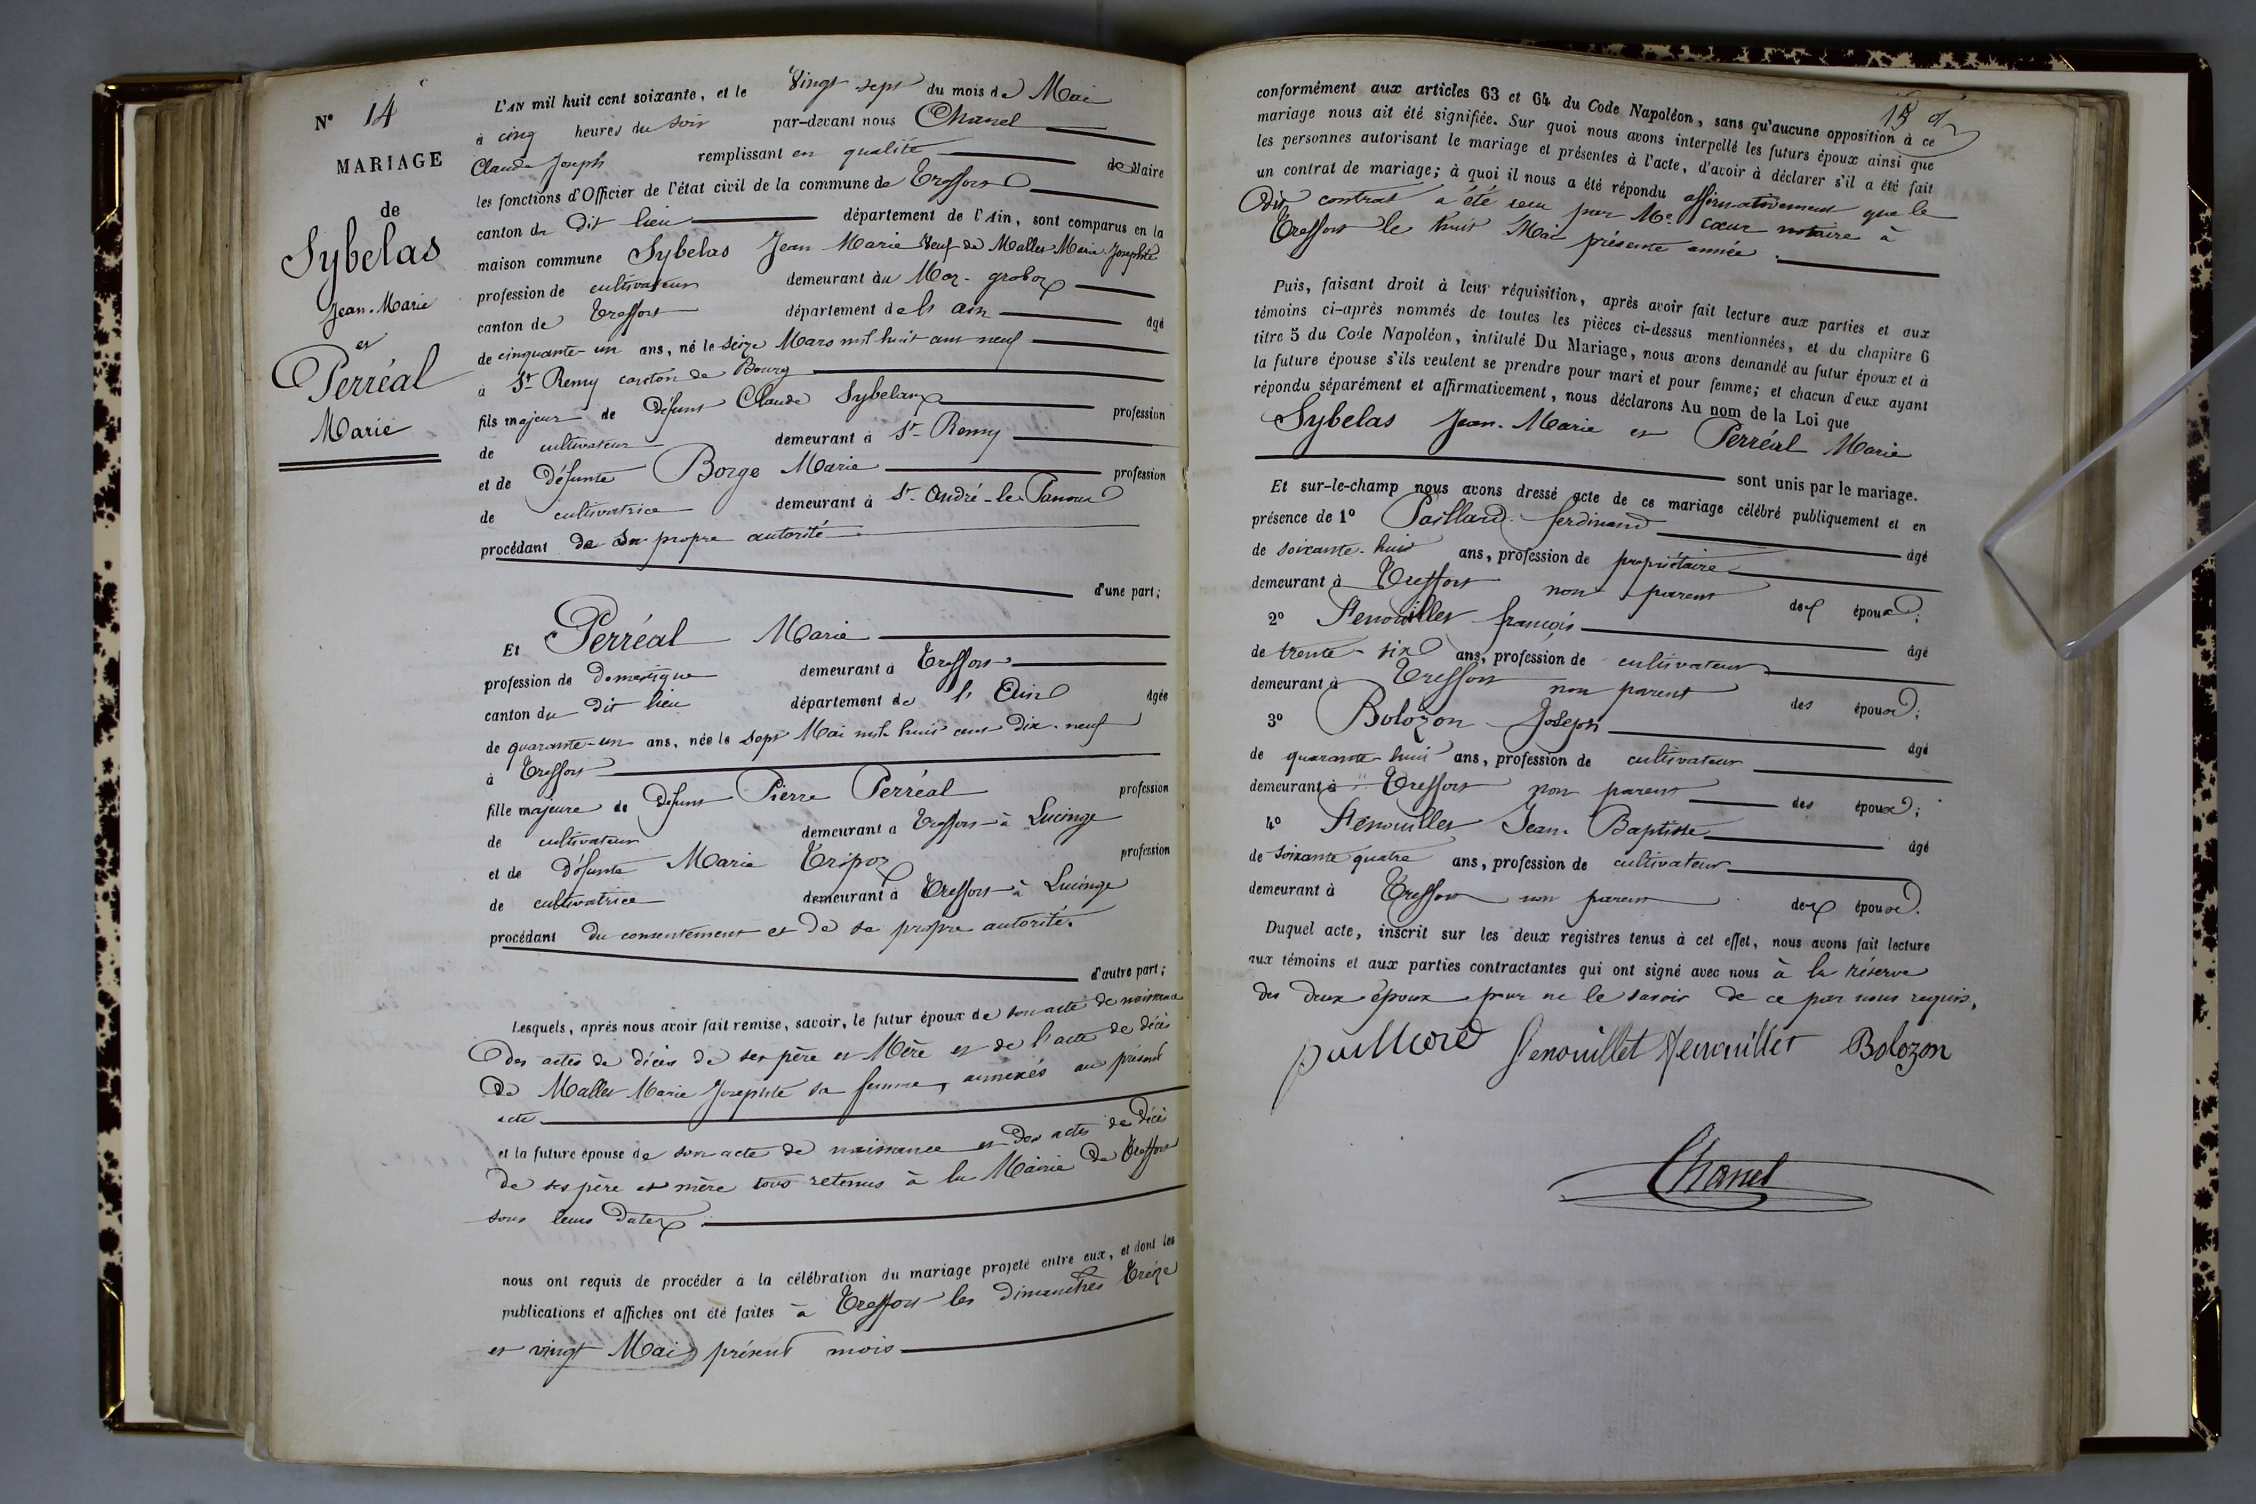 N° 14
MARIAGE
de
Sybelas
Jean-Marie
et
Perréal
Marie
L'AN mil huit cent soixante, et le Vingt sept du mois de Mai
à cinq heures du soir par-devant nous Chanel
Claude Joseph remplissant en qualité de Maire
les fonctions d'Officier de l'état civil de la commune de Treffort
canton du dit lieu département de l'Ain, sont comparus en la
maison commune Sybelas Jean Marie Veuf de Mallet Marie Josephte
profession de cultivateur demeurant au Mas-groboz
canton de Treffort département de l'ain âgé
de cinquante-un ans, né le seize Mars mil huit cent neuf
à St Remy canton de Bourg
fils majeur de défunt Claude Sybelas profession
de cultivateur demeurant à St Remy
et de défunte Borge Marie profession
de cultivatrice demeurant à St André-le-Panoux
procédant de sa propre autorité
d'une part;
Et Perréal Marie
profession de domestique demeurant à Treffort
canton du dit lieu département de l'Ain âgée
de quarante-un ans, née le sept Mai mil huit cent dix-neuf
à Treffort
fille majeure de défunt Pierre Perréal profession
de cultivateur demeurant à Treffort à Lucinge
et de défunte Marie Tripoz profession
de cultivatrice demeurant à Treffort à Lucinge
procédant du consentement et de sa propre autorité.
d'autre part;
Lesquels, après nous avoir fait remise, savoir, le futur époux de son acte de naissance
des actes de décès de ses père et Mère et de l'acte de décès
de Mallet Marie Josephte sa femme, annexés au présent
acte
et la future épouse de son acte de naissance et des actes de décès
de ses père et mère tous retenus à la Mairie de Treffort
sous leurs dates.
nous ont requis de procéder à la célébration du mariage projeté entre eux, et dont les
publications et affiches ont été faites à Treffort les dimanches treize
et vingt Mai présent mois
15
conformément aux articles 63 et 64 du Code Napoléon, sans qu'aucune opposition à ce
mariage nous ait été signifiée. Sur quoi nous avons interpellé les futurs époux ainsi que
les personnes autorisant le mariage et présentes à l'acte, d'avoir à déclarer s'il a été fait
un contrat de mariage; à quoi il nous a été répondu affirmativement que le
dit contrat a été reçu par Me. Cœur notaire à
Treffort le huit Mai présente année.
Puis, faisant droit à leur réquisition, après avoir fait lecture aux parties et aux
témoins ci-après nommés de toutes les pièces ci-dessus mentionnées, et du chapitre 6
titre 5 du Code Napoléon, intitulé Du Mariage, nous avons demandé au futur époux et à
la future épouse s'ils veulent se prendre pour mari et pour femme; et chacun d'eux ayant
répondu séparément et affirmativement, nous déclarons Au nom de la Loi que
Sybelas Jean-Marie et Perréal Marie
sont unis par le mariage.
Et sur-le-champ nous avons dressé acte de ce mariage célébré publiquement et en
présence de 1° Paillard ferdinand âgé
de soixante-huit ans, profession de propriétaire
demeurant à Treffort non parent des époux;
2° Fenouillet françois âgé
de trente-six ans, profession de cultivateur
demeurant à Treffort non parent des époux;
3° Bolozon Joseph âgé
de quarante-huit ans, profession de cultivateur
demeurant à Treffort non parent des époux;
4° Fenouillet Jean-Baptiste âgé
de soixante quatre ans, profession de cultivateur
demeurant à Treffort non parent des époux.
Duquel acte, inscrit sur les deux registres tenus à cet effet, nous avons fait lecture
aux témoins et aux parties contractantes qui ont signé avec nous à la réserve
des deux époux pour ne le savoir de ce par nous requis.
paillard fenouillet fenouillet Bolozon
Chanel